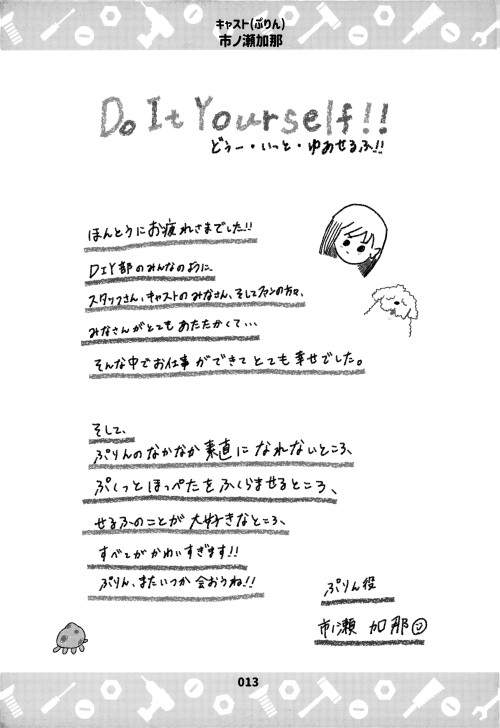 キャスト(ぷりん)
市ノ瀬加那
Do It Yourself!!
どぅー・いっと・ゆあせるふ!!
ほんとうにお疲れさまでした!!
DIY部のみんなのように、
スタッフさん、キャストのみなさん、そしてファンの方々、
みなさんがとてもあたたかくて…
そんな中でお仕事ができてとても幸せでした。
そして、
ぷりんのなかなか素直になれないところ、
ぷくっとほっぺたをふくらませるところ、
せるふのことが大好きなところ、
すべてがかわいすぎます!!
ぷりん、またいつか会おうね!!
ぷりん役
市ノ瀬 加那
013